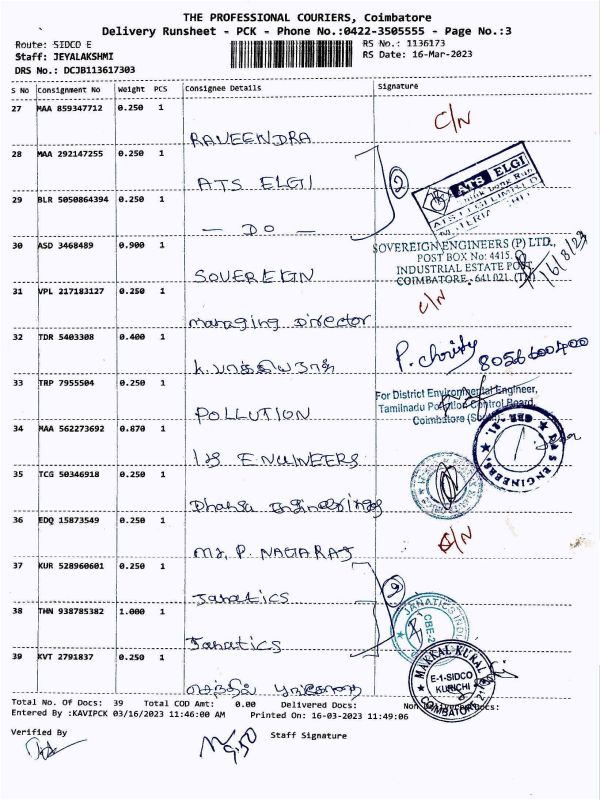 THE PROFESSIONAL COURIERS, Coimbatore
Delivery Runsheet - PCK - Phone No.:0422-3505555 - Page No.:3
Route: SIDCO E
RS No.: 1136173
Staff: JEYALAKSHMI
RS Date: 16-Mar-2023
DRS No.: DCJB113617303
S No Consignment No Weight PCS Consignee Details Signature
27 MAA 859347712 0.250 1
RAVEENDRA C/N
28 MAA 292147255 0.250 1
ATS ELGI 2
ATS ELGI
29 BLR 5050864394 0.250 1
- DO -
30 ASD 3468489 0.900 1
SOVEREIGN ENGINEERS (P) LTD.,
POST BOX No: 4415.
INDUSTRIAL ESTATE POST
COIMBATORE - 641 021. (TN)
SOVEREIGN
31 VPL 217183127 0.250 1
C/N
Managing Director
32 TDR 5403308 0.400 1
P. 8056600400
33 TRP 7955504 0.250 1
For District Environmental Engineer,
Tamilnadu Pollution Control Board,
Coimbatore
POLLUTION
34 MAA 562273692 0.870 1
ENGINEERS
ENGINEERS
35 TCG 50346918 0.250 1
36 EDQ 15873549 0.250 1
C/N
Mr. P. NAGARAJ
37 KUR 528960601 0.250 1
Janatics
38 THN 938785382 1.000 1
JANATICS
Janatics
39 KVT 2791837 0.250 1
MAKKAL KURAL
E-1-SIDCO
KURICHI
COIMBATORE
செந்தில்
Total No. Of Docs: 39 Total COD Amt: 0.00 Delivered Docs:
Entered By :KAVIPCK 03/16/2023 11:46:00 AM Printed On: 16-03-2023 11:49:06
Verified By
Staff Signature
9.50